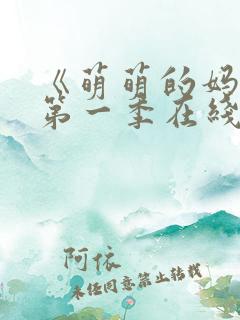 《萌萌的妈
第一季在线
阿依
未经同意禁止转载